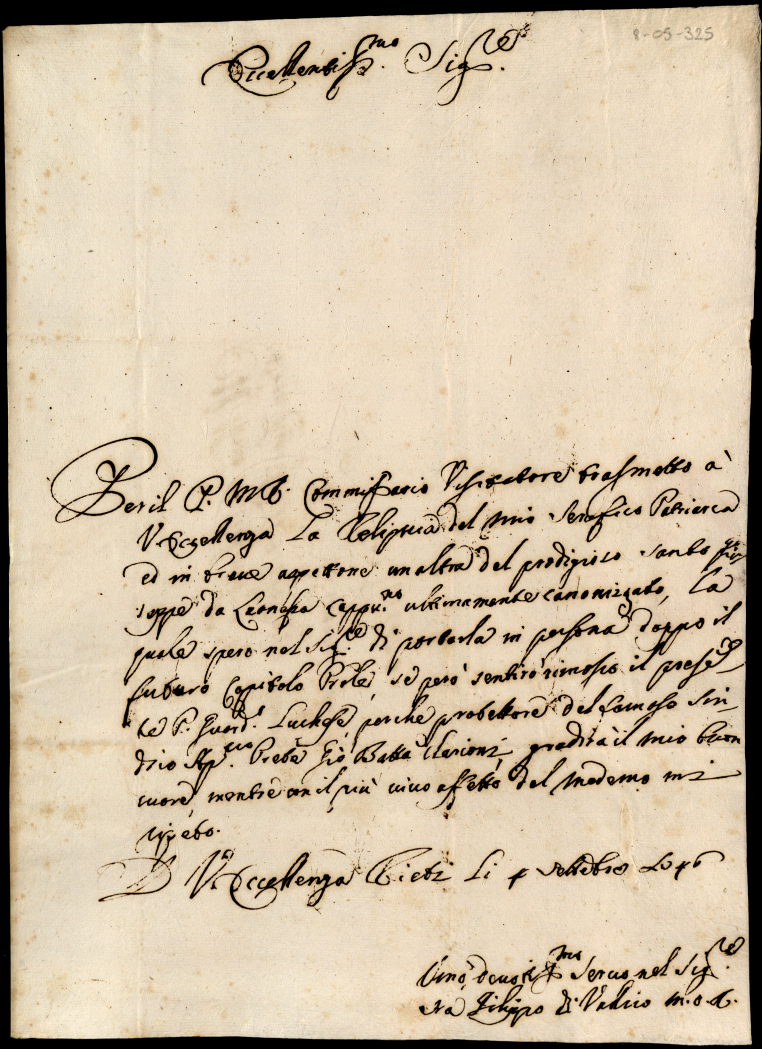 8-05-325
Eccellentiss.mo Sig.re
Per il P. M. Commissario Visitatore trasmetto à
V. Eccellenza La Reliquia del mio Serafico Patriarca
ed in breve aspettone un altra del prodigioso santo Giu
seppe da Leonessa Capp.no ultimamente canonizzato, La
quale spero nel Sig.re di portarla in persona doppo il
futuro Capitolo Prõle, se però sentirò rimosso il presẽ
te P. Guard.e Luchese, perche protettore del famoso Sin
dico Ap.co Prete Gio Batta Clarioni, gradirà il mio buon
cuore, mentre con il più vivo affetto del medemo mi
ripeto.
D V. Eccellenza Rieti Li 4 settẽbre 1746
Umo, devotiss.mo Servo nel Sig.re
fra Filippo di Vallico m. o.